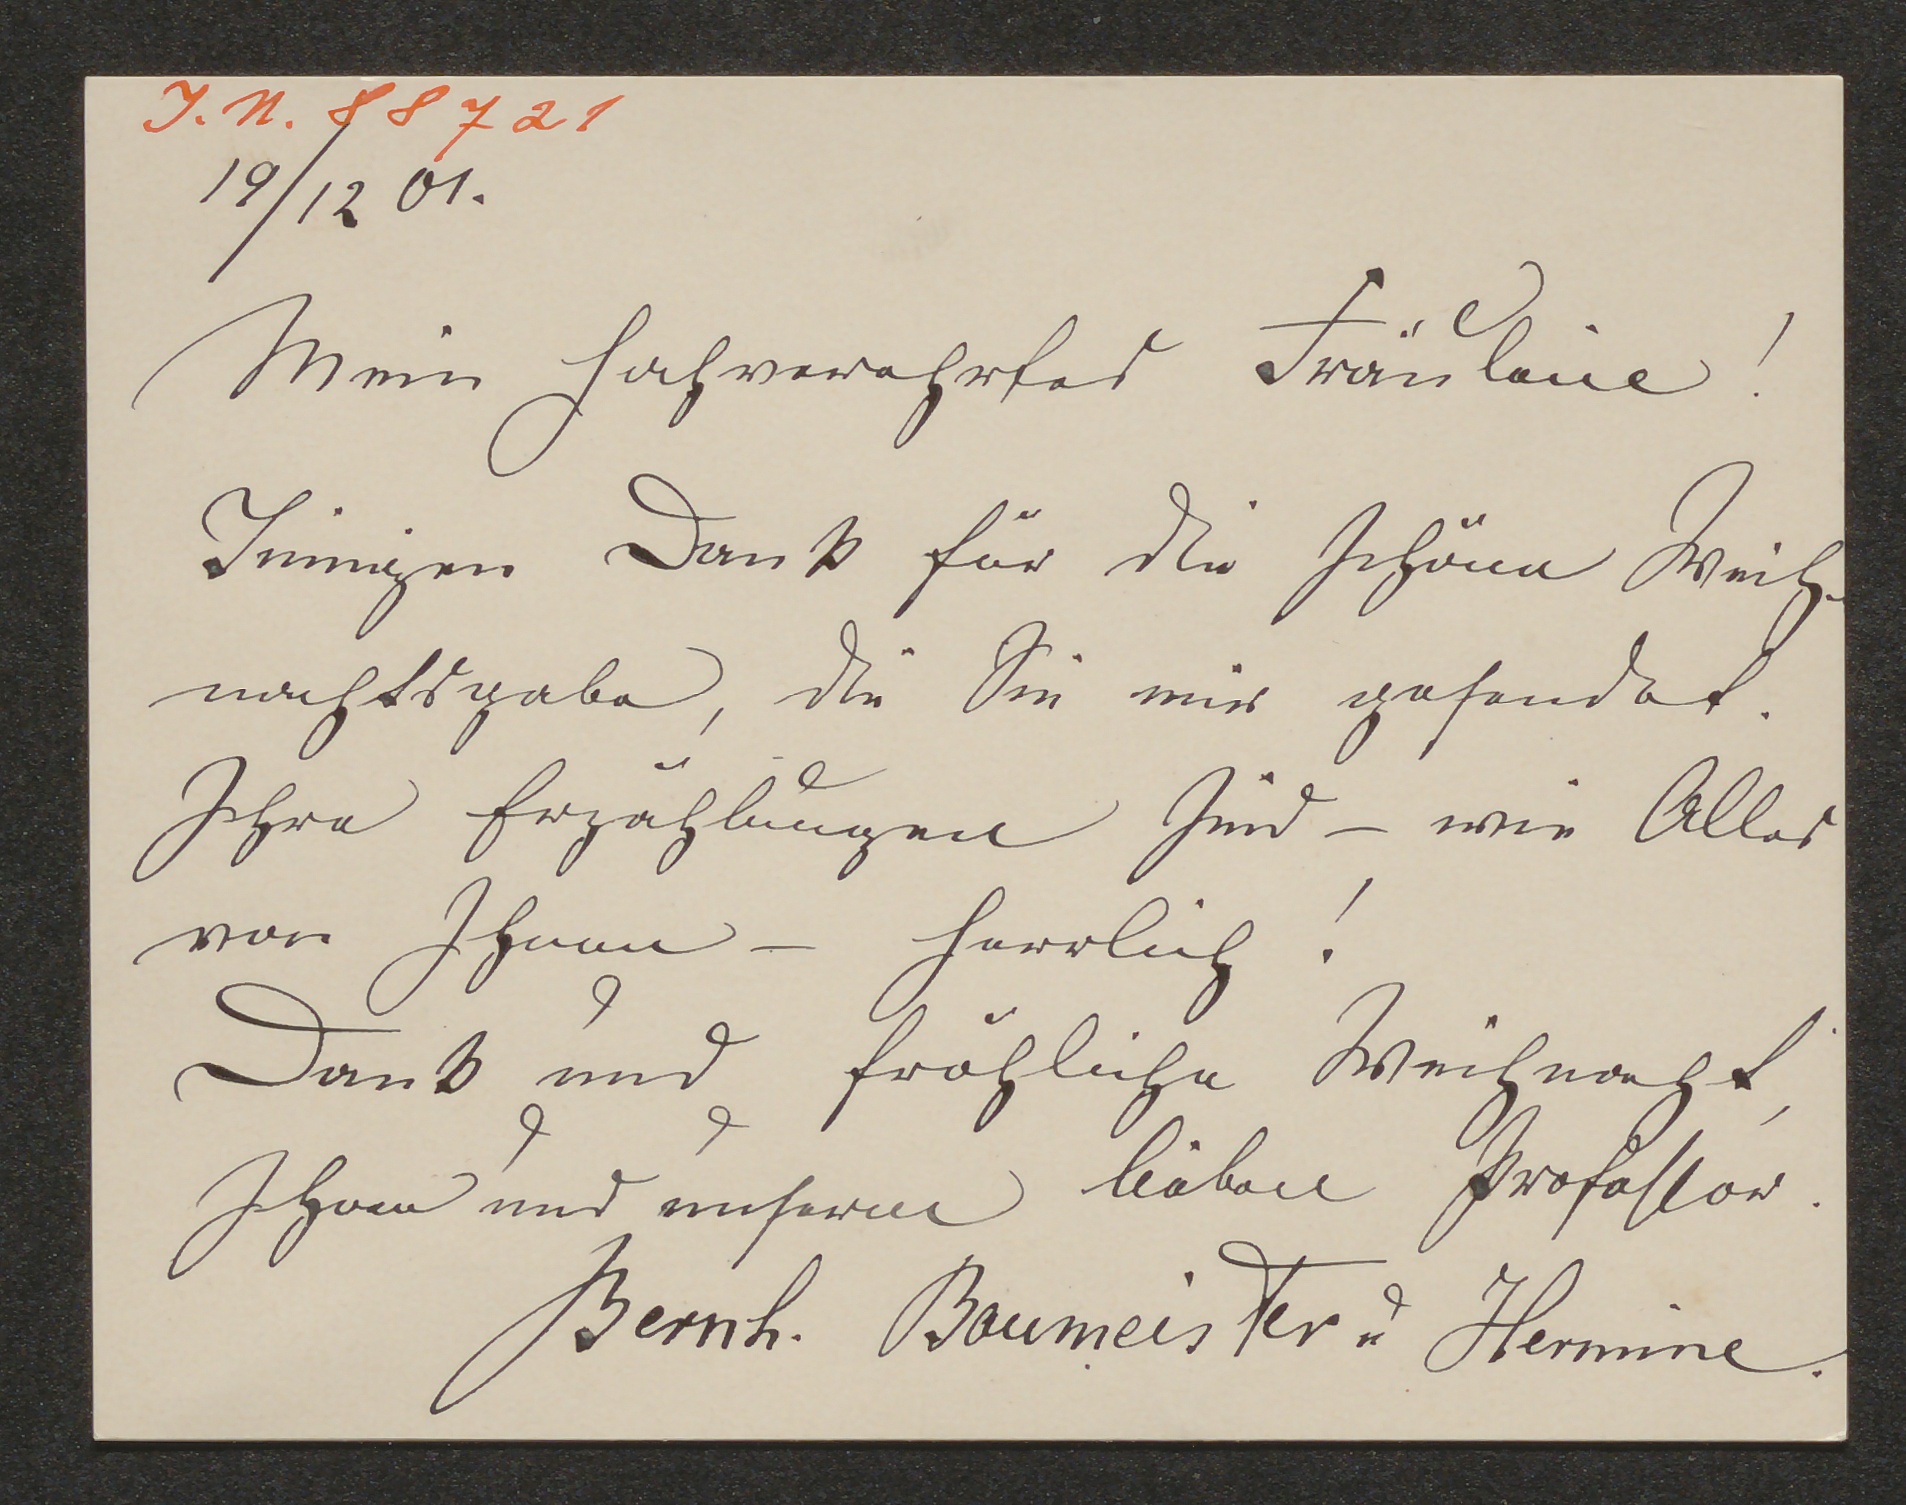 J. N. 88721
19/12 01.
Mein hochverehrtes Fräulein!
Innigen Dank für die schöne Weih-
nachtsgabe, die Sie mir gesendet.
Ihre Erzählungen sind – wie Alles
von Ihnen – herrlich!
Dank und fröhliche Weihnacht,
Ihnen und unserm lieben Professor.
Bernh. Baumeister u Hermine.